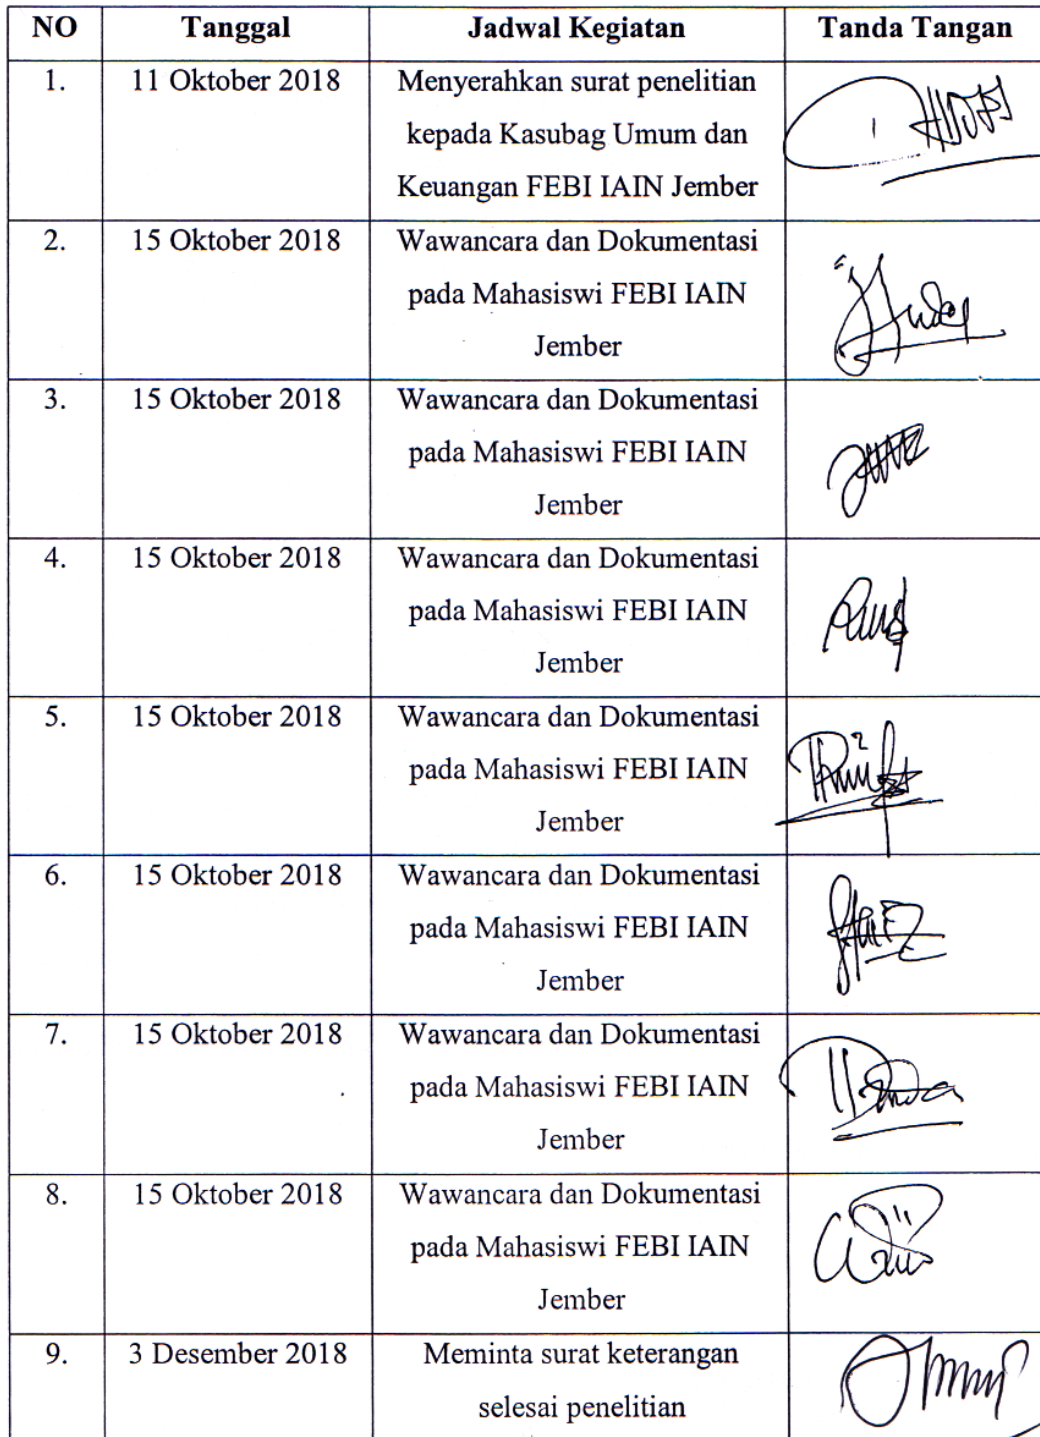 NO Tanggal Jadwal Kegiatan Tanda Tangan
1. 11 Oktober 2018 Menyerahkan surat penelitian
kepada Kasubag Umum dan
Keuangan FEBI IAIN Jember
2. 15 Oktober 2018 Wawancara dan Dokumentasi
pada Mahasiswi FEBI IAIN
Jember
3. 15 Oktober 2018 Wawancara dan Dokumentasi
pada Mahasiswi FEBI IAIN
Jember
4. 15 Oktober 2018 Wawancara dan Dokumentasi
pada Mahasiswi FEBI IAIN
Jember
5. 15 Oktober 2018 Wawancara dan Dokumentasi
pada Mahasiswi FEBI IAIN
Jember
6. 15 Oktober 2018 Wawancara dan Dokumentasi
pada Mahasiswi FEBI IAIN
Jember
7. 15 Oktober 2018 Wawancara dan Dokumentasi
pada Mahasiswi FEBI IAIN
Jember
8. 15 Oktober 2018 Wawancara dan Dokumentasi
pada Mahasiswi FEBI IAIN
Jember
9. 3 Desember 2018 Meminta surat keterangan
selesai penelitian